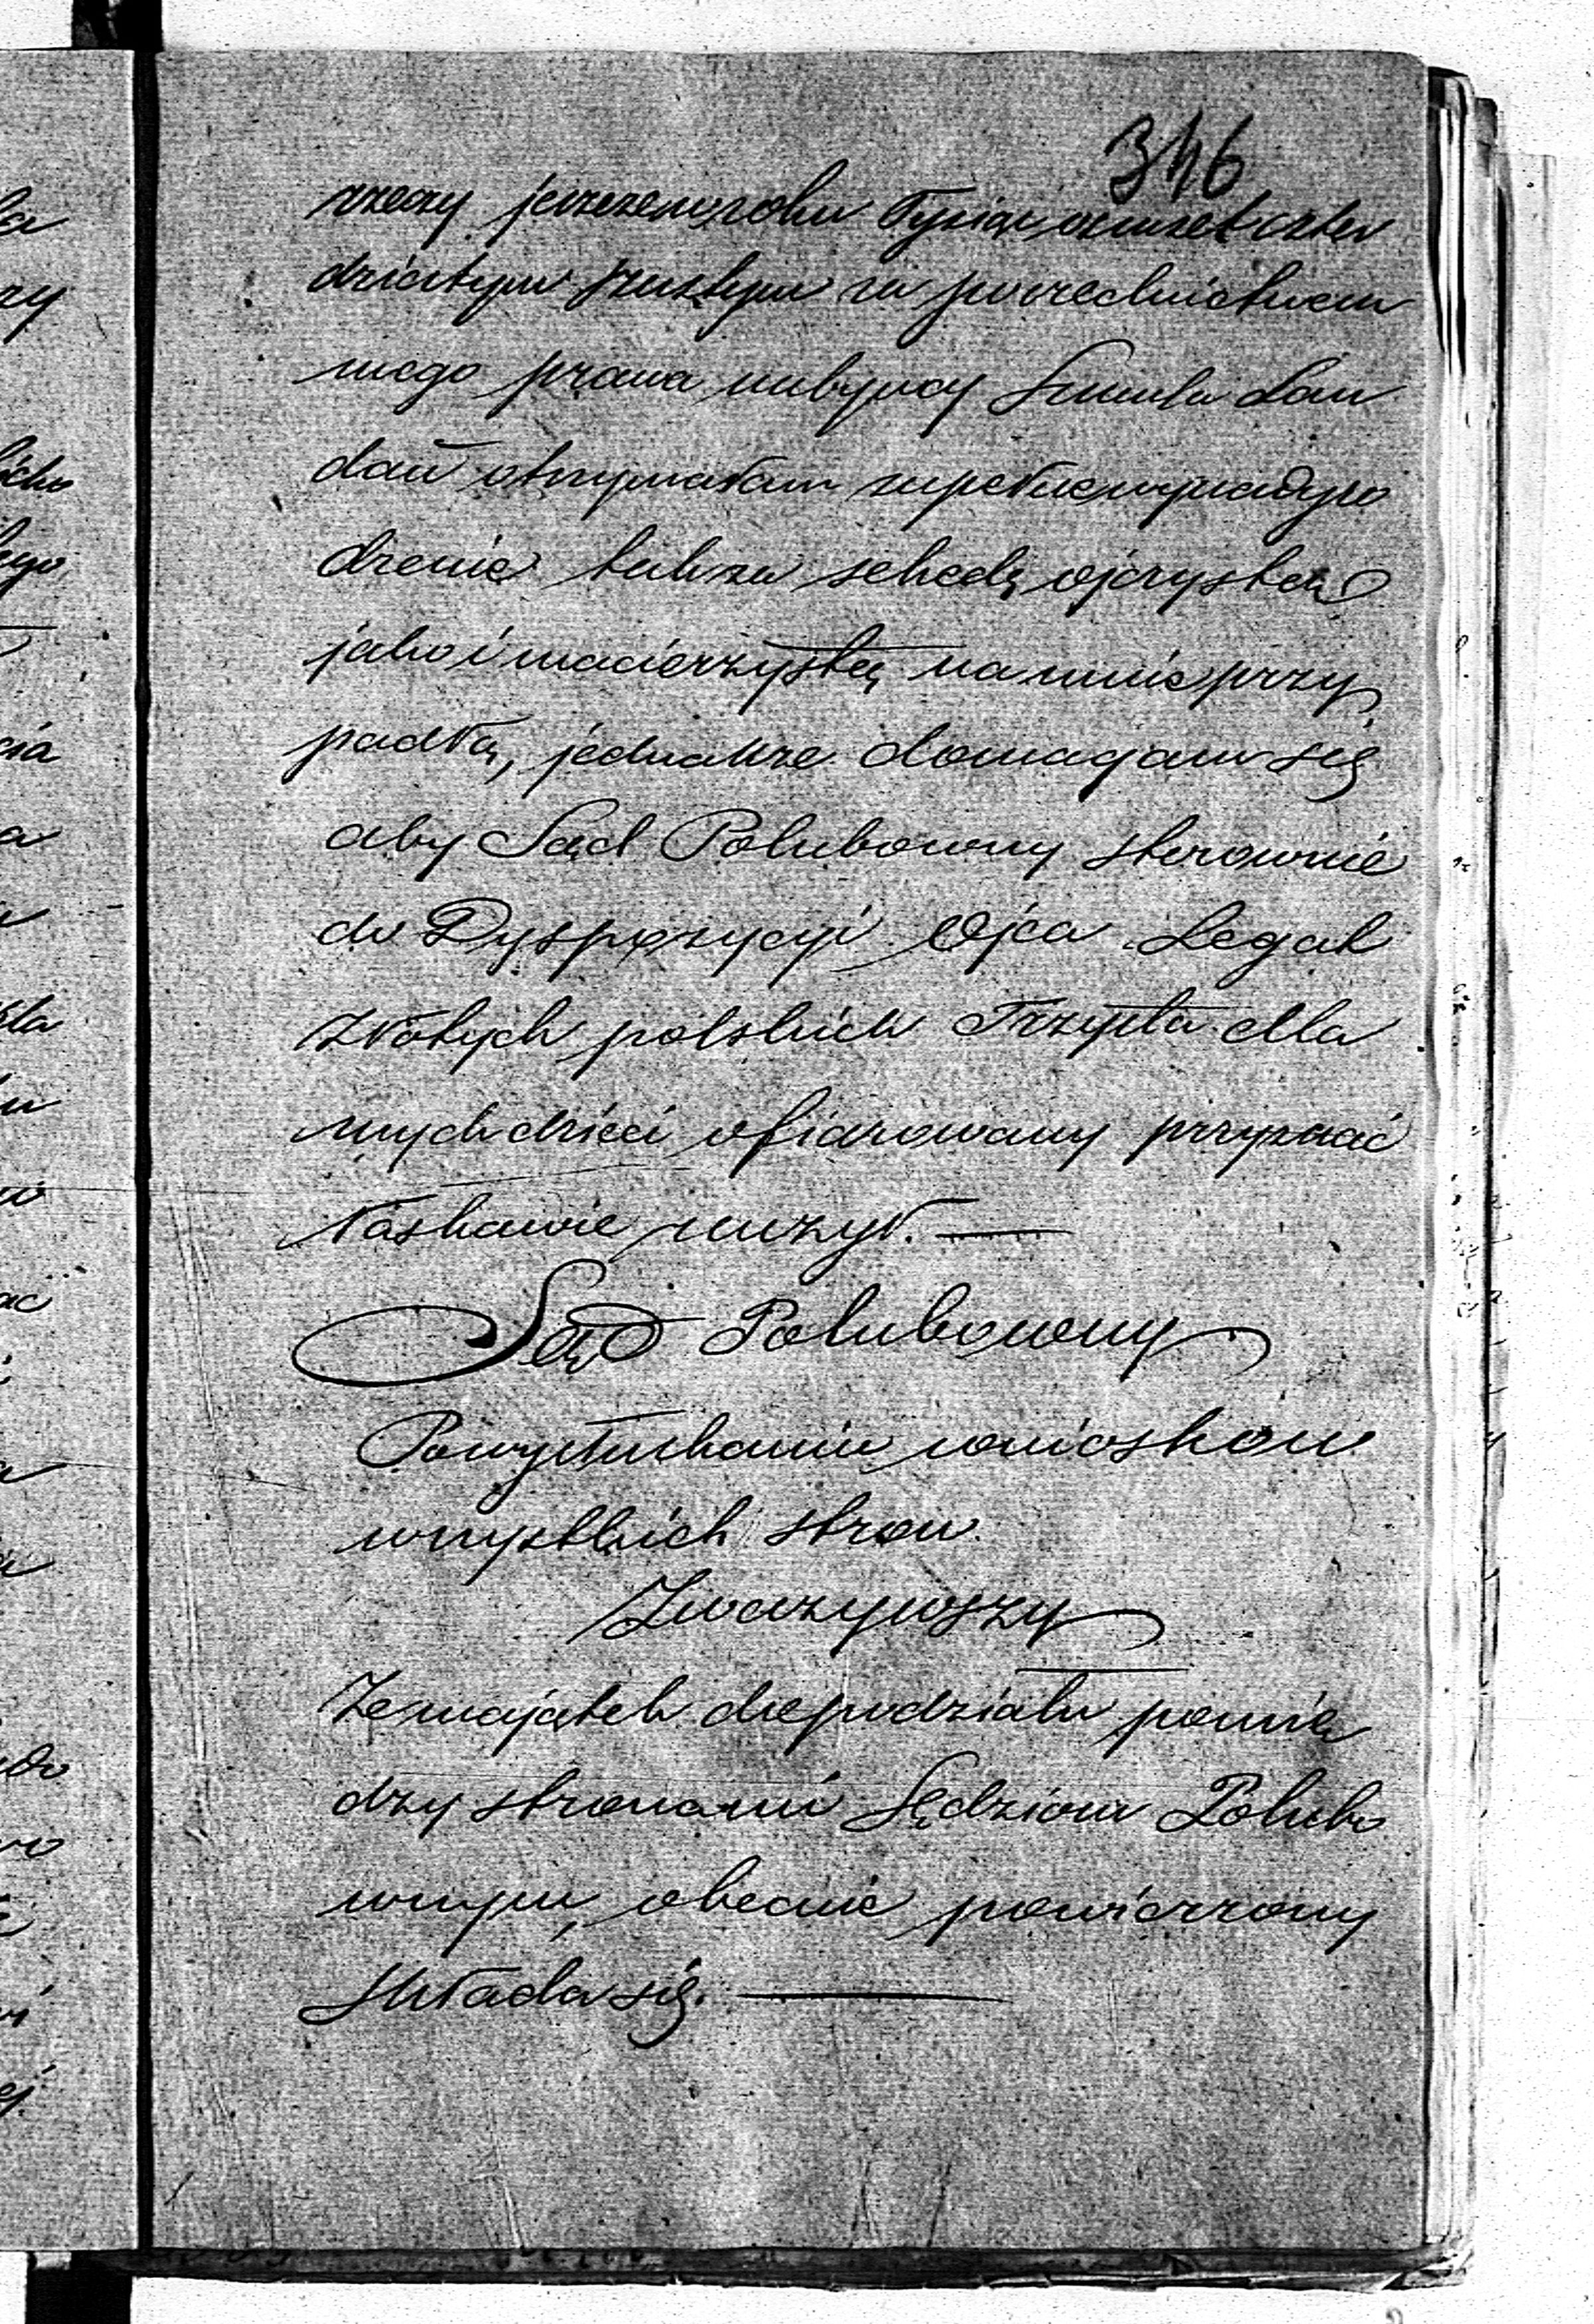 346
rzeczy jeszcze w roku Tysiąc ośmset czter
dziestym szustym za pośrednictwem
mego prawa nabywcy Szmula Lan
dau otrzymałam zupełne wynadgro
dzenie tak za schedę ojczystą
jako i macierzystą na mnie przy
padłą, jednakże domagam się
aby Sąd Polubowny stosownie
do Dyspozycyi Ojca Legat
złotych polskich Trzysta dla
mych dzieci ofiarowany przyznać
łaskawie raczył. —
Sąd Polubowny
Po wysłuchaniu wniosków
wszystkich stron
Zważywszy
Że majątek do podziału pomię
dzy stronami Sędziom Polubo
wnym, obecnie powierzony
składa się. —